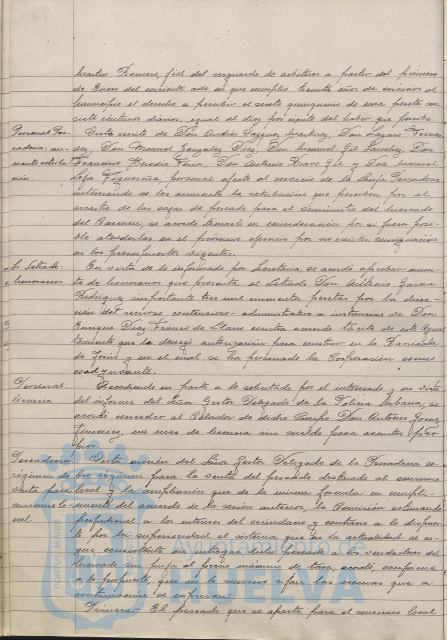 Martín Romero, fiel del resguardo de arbitrios a partir del primero
de Enero del corriente año en que cumplió treinta años de servicios al
Municipio el derecho a percibir el sexto quinquenio de una peseta con
siete céntimos diarios, igual al diez por ciento del haber que percibe
Personal Pes-
cadería: au-
mento retribu-
ción.
Visto escrito de Don Andrés Vázquez Don Lázaro
Don Manuel González Díaz, Don Manuel Gil Sánchez, Don
Francisco Heredia Feria, Don Antonio Bravo Gil y Don Manuel
Figueroa, personal afecto al servicio de la Pescadería
interesando se les aumente la retribución que perciben por el
arrastre de las cajas de pescado para el suministro del mercado
del Carmen, se acordó tomarlo en consideración por si fuera posi-
ble atenderlos en el próximo ejercicio por no existir consignación
en los presupuestos vigentes.
Letrado:
honorarios
En vista de lo informado por Secretaría, se acordó aprobar minu-
ta de honorarios que presenta el Letrado Don Antonio García
Rodríguez importante tres mil cincuenta pesetas por la direc-
ción del recurso contencioso-administrativo a instancias de Don
Enrique Díaz Franco de Llanos contra acuerdo tácito de este Ayun-
tamiento que le denegó autorización para construir en la Barriada
de y en el cual se ha personado la Corporación como
coadyuvante.
Personal:
licencia
Accediendo en parte a lo solicitado por el interesado y en vista
del informe del Señor Gestor Delegado de la Policía Urbana, se
acordó conceder al Celador de dicho Cuerpo Don Antonio Gómez
un mes de licencia sin sueldo para asuntos pro-
pios.
Pescadería:
régimen de
venta para
consumo lo-
cal.
Vista moción del Señor Gestor Delegado de la Pescadería so-
bre régimen para la venta del pescado destinado al consumo
local y la ampliación que de la misma formula en cumpli-
miento del acuerdo de la sesión anterior, la Comisión estimando
perjudicial a los intereses del vecindario y contrario a lo dispues-
to por la superioridad el sistema que en la actualidad se si-
gue consistente en entregar dicho pescado a los vendedores del
Mercado sin puja al precio máximo de tasa, acordó, conforme
a lo propuesto, que en lo sucesivo rijan las normas que a
continuación se expresan:
Primera- El pescado que se aparte para el consumo local
Ayuntamiento de
HUELVA